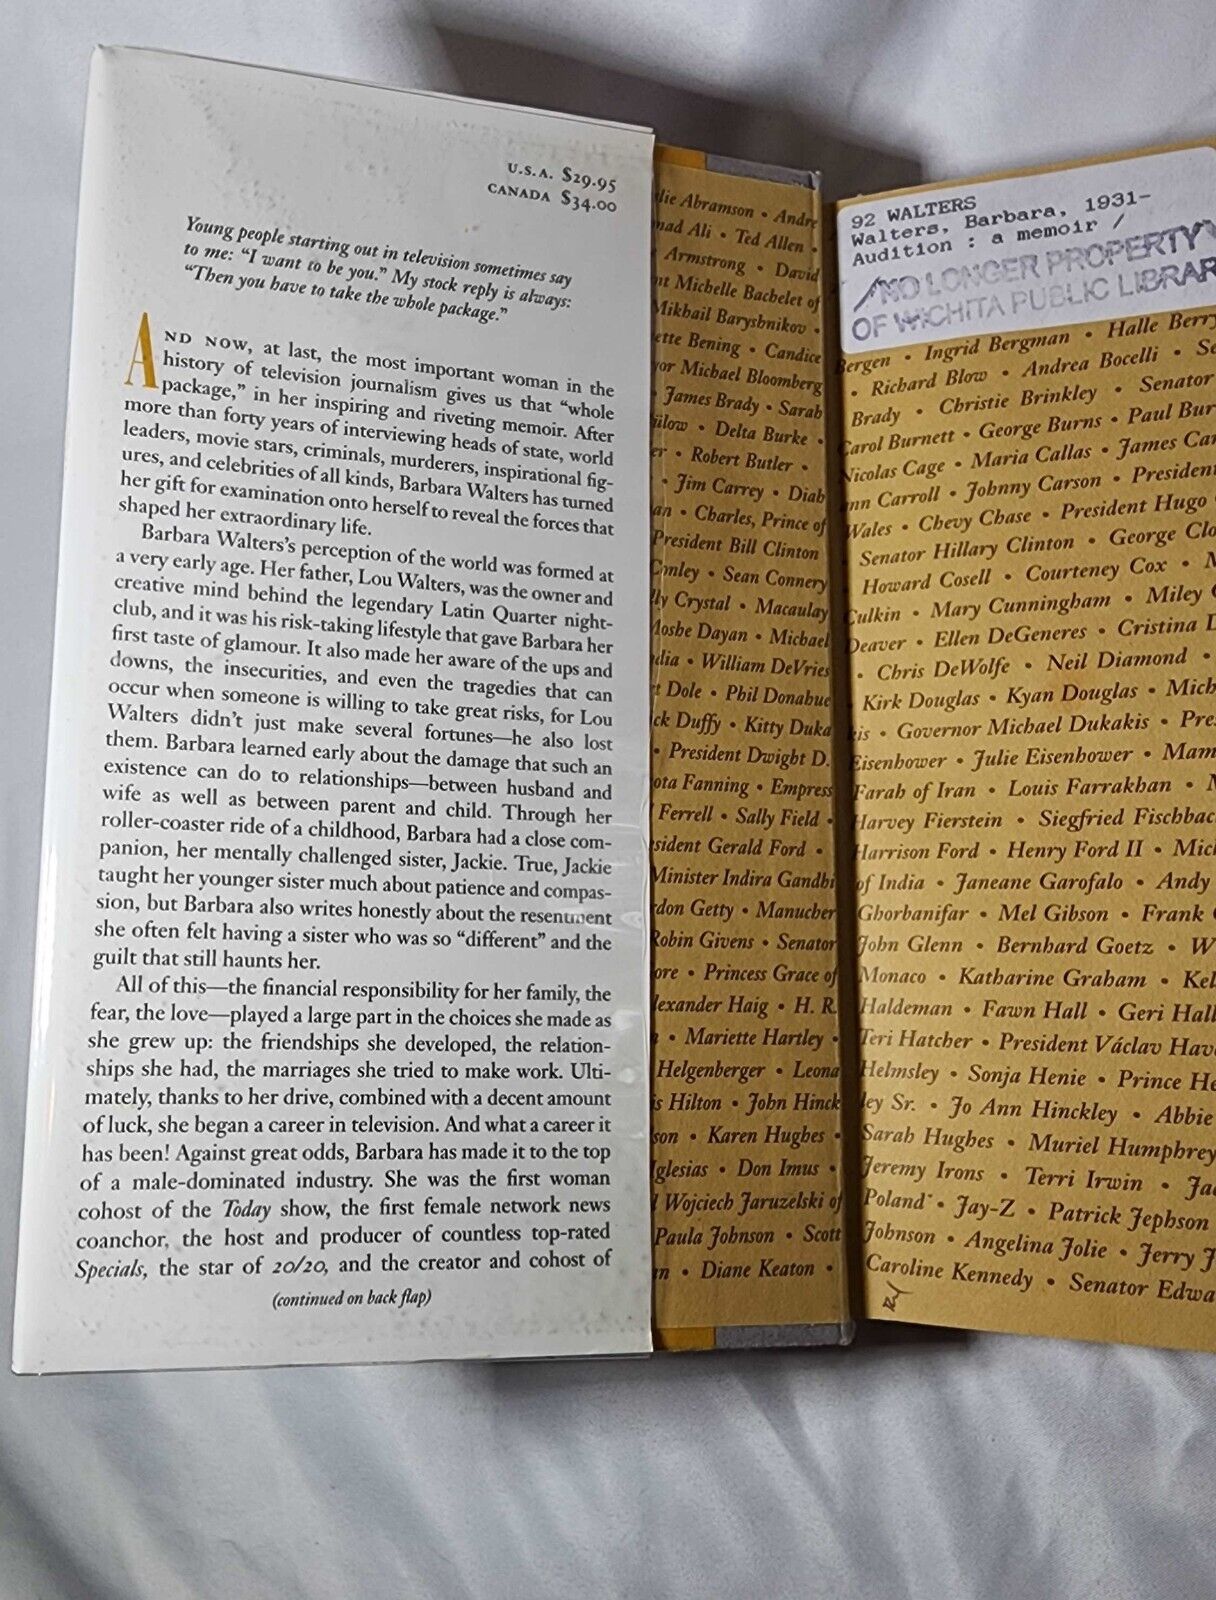 U.S.A. $29.95
CANADA $34.00
Young people starting out in television sometimes say
to me: “I want to be you.” My stock reply is always:
“Then you have to take the whole package.”
AND NOW, at last, the most important woman in the
history of television journalism gives us that “whole
package,” in her inspiring and riveting memoir. After
more than forty years of interviewing heads of state, world
leaders, movie stars, criminals, murderers, inspirational fig-
ures, and celebrities of all kinds, Barbara Walters has turned
her gift for examination onto herself to reveal the forces that
shaped her extraordinary life.
Barbara Walters’s perception of the world was formed at
a very early age. Her father, Lou Walters, was the owner and
creative mind behind the legendary Latin Quarter night-
club, and it was his risk-taking lifestyle that gave Barbara her
first taste of glamour. It also made her aware of the ups and
downs, the insecurities, and even the tragedies that can
occur when someone is willing to take great risks, for Lou
Walters didn’t just make several fortunes—he also lost
them. Barbara learned early about the damage that such an
existence can do to relationships—between husband and
wife as well as between parent and child. Through her
roller-coaster ride of a childhood, Barbara had a close com-
panion, her mentally challenged sister, Jackie. True, Jackie
taught her younger sister much about patience and compas-
sion, but Barbara also writes honestly about the resentment
she often felt having a sister who was so “different” and the
guilt that still haunts her.
All of this—the financial responsibility for her family, the
fear, the love—played a large part in the choices she made as
she grew up: the friendships she developed, the relation-
ships she had, the marriages she tried to make work. Ulti-
mately, thanks to her drive, combined with a decent amount
of luck, she began a career in television. And what a career it
has been! Against great odds, Barbara has made it to the top
of a male-dominated industry. She was the first woman
cohost of the Today show, the first female network news
coanchor, the host and producer of countless top-rated
Specials, the star of 20/20, and the creator and cohost of
(continued on back flap)
Abramson • Andre
Ali • Ted Allen •
Armstrong • David
Michelle Bachelet of
Mikhail Baryshnikov •
Bening • Candice
Michael Bloomberg
• James Brady • Sarah
• Delta Burke •
• Robert Butler •
• Jim Carrey • Diah
• Charles, Prince of
President Bill Clinton
Conley • Sean Connery
Crystal • Macaulay
Moshe Dayan • Michael
• William DeVries
Dole • Phil Donahue
Duffy • Kitty Duka
• President Dwight D.
Fanning • Empress
Ferrell • Sally Field •
Gerald Ford •
Minister Indira Gandhi
Getty • Manucher
Robin Givens • Senator
• Princess Grace of
Alexander Haig • H. R.
• Mariette Hartley •
Helgenberger • Leona
Hilton • John Hinck
• Karen Hughes •
Iglesias • Don Imus •
Wojciech Jaruzelski of
Paula Johnson • Scott
• Diane Keaton •
92 WALTERS
Walters, Barbara, 1931-
Audition : a memoir /
NO LONGER PROPERTY
OF WICHITA PUBLIC LIBRAR
Bergen • Ingrid Bergman • Halle Berry
• Richard Blow • Andrea Bocelli •
Brady • Christie Brinkley • Senator
Carol Burnett • George Burns • Paul Bur
Nicolas Cage • Maria Callas • James Car
Carroll • Johnny Carson • President
Wales • Chevy Chase • President Hugo
Senator Hillary Clinton • George Clo
Howard Cosell • Courteney Cox •
Culkin • Mary Cunningham • Miley
Deaver • Ellen DeGeneres • Cristina
• Chris DeWolfe • Neil Diamond •
Kirk Douglas • Kyan Douglas • Mich
kis • Governor Michael Dukakis • Pres
Eisenhower • Julie Eisenhower • Mam
Farah of Iran • Louis Farrakhan •
Harvey Fierstein • Siegfried Fischbac
Harrison Ford • Henry Ford II • Mich
of India • Janeane Garofalo • Andy
Ghorbanifar • Mel Gibson • Frank
John Glenn • Bernhard Goetz •
Monaco • Katharine Graham • Kel
Haldeman • Fawn Hall • Geri Hall
Teri Hatcher • President Václav Hav
Helmsley • Sonja Henie • Prince He
ley Sr. • Jo Ann Hinckley • Abbie
Sarah Hughes • Muriel Humphrey
Jeremy Irons • Terri Irwin •
Poland • Jay-Z • Patrick Jephson
Johnson • Angelina Jolie • Jerry
Caroline Kennedy • Senator Edwa